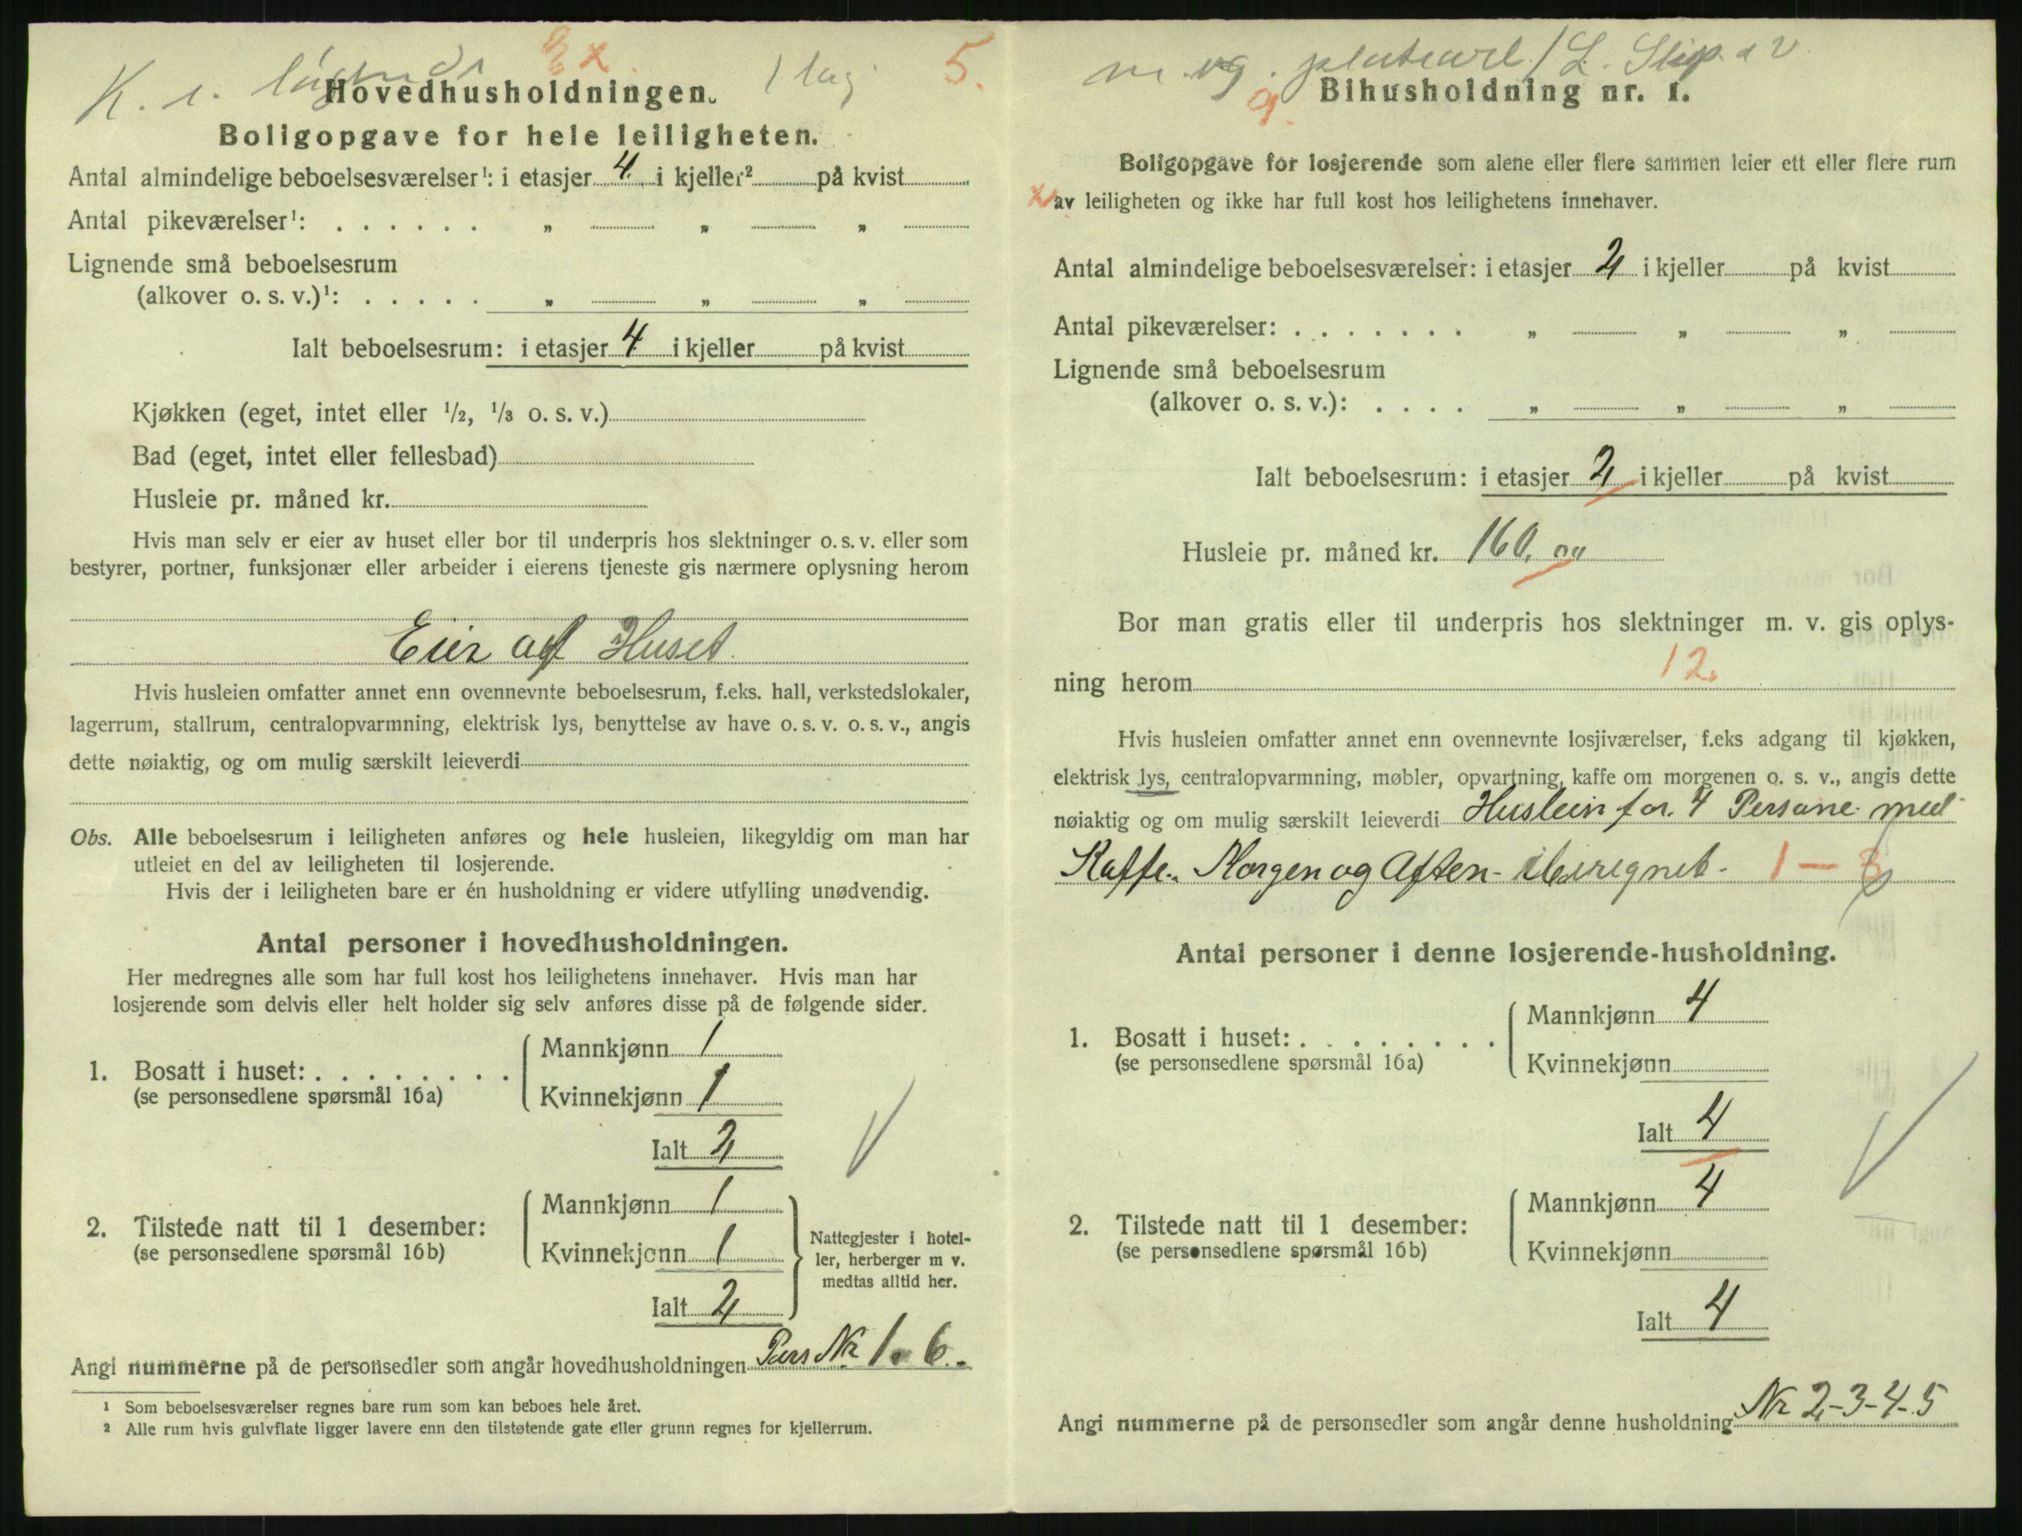 Ex. 5.
Hovedhusholdningen.
Boligopgave for hele leiligheten.
Antal almindelige beboelsesværelser¹: i etasjer 4. i kjeller² på kvist
Antal pikeværelser¹: . . . . . . „ „ „
Lignende små beboelsesrum
(alkover o. s. v.)¹: . . . . . „ „ „
Ialt beboelsesrum: i etasjer 4 i kjeller på kvist
Kjøkken (eget, intet eller 1/2, 1/3 o. s. v.)
Bad (eget, intet eller fellesbad)
Husleie pr. måned kr.
Hvis man selv er eier av huset eller bor til underpris hos slektninger o. s. v. eller som
bestyrer, portner, funksjonær eller arbeider i eierens tjeneste gis nærmere oplysning herom
Eier af Huset.
Hvis husleien omfatter annet enn ovennevnte beboelsesrum, f.eks. hall, verkstedslokaler,
lagerrum, stallrum, centralopvarmning, elektrisk lys, benyttelse av have o. s. v. o. s. v., angis
dette nøiaktig, og om mulig særskilt leieverdi
Obs. Alle beboelsesrum i leiligheten anføres og hele husleien, likegyldig om man har
utleiet en del av leiligheten til losjerende.
Hvis der i leiligheten bare er én husholdning er videre utfylling unødvendig.
Antal personer i hovedhusholdningen.
Her medregnes alle som har full kost hos leilighetens innehaver. Hvis man har
losjerende som delvis eller helt holder sig selv anføres disse på de følgende sider.
1. Bosatt i huset: . . . . . . . .
(se personsedlene spørsmål 16a)
Mannkjønn 1
Kvinnekjønn 1
Ialt 2
2. Tilstede natt til 1 desember:
(se personsedlene spørsmål 16b)
Mannkjønn 1
Kvinnekjønn 1
Ialt 2
Nattegjester i hotel-
ler, herberger m v.
medtas alltid her.
Angi nummerne på de personsedler som angår hovedhusholdningen Pers Nr 1. 6.
¹ Som beboelsesværelser regnes bare rum som kan beboes hele året.
² Alle rum hvis gulvflate ligger lavere enn den tilstøtende gate eller grunn regnes for kjellerrum.
9.
Bihusholdning nr. 1.
Boligopgave for losjerende som alene eller flere sammen leier ett eller flere rum
av leiligheten og ikke har full kost hos leilighetens innehaver.
Antal almindelige beboelsesværelser: i etasjer 2 i kjeller på kvist
Antal pikeværelser: . . . . . . . „ „ „
Lignende små beboelsesrum
(alkover o. s. v.): . . . . „ „ „
Ialt beboelsesrum: i etasjer 2 i kjeller på kvist
Husleie pr. måned kr. 160.00
Bor man gratis eller til underpris hos slektninger m. v. gis oplys-
ning herom 12.
Hvis husleien omfatter annet enn ovennevnte losjiværelser, f.eks adgang til kjøkken,
elektrisk lys, centralopvarmning, møbler, opvartning, kaffe om morgenen o. s. v., angis dette
nøiaktig og om mulig særskilt leieverdi Huslein for. 4 Persone. med
Kaffe. Morgen og Aften- iberegnet. 1 —
Antal personer i denne losjerende-husholdning.
1. Bosatt i huset: . . . . . . . .
(se personsedlene spørsmål 16a)
Mannkjønn 4
Kvinnekjønn
Ialt 4
2. Tilstede natt til 1 desember:
(se personsedlene spørsmål 16b)
Mannkjønn 4
Kvinnekjønn
Ialt 4
Angi nummerne på de personsedler som angår denne husholdning Nr 2-3-4-5